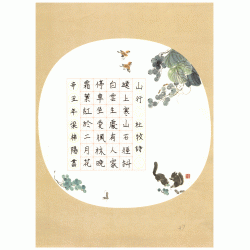 山行 杜牧詩
遠上寒山石徑斜
白雲生處有人家
停車坐愛楓林晚
霜葉紅於二月花
辛丑年梁
陽書